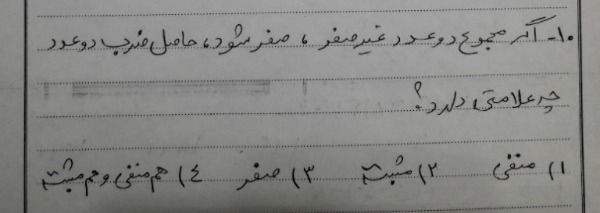 ۱۰- اگر مجموع دو عدد غیر صفر ، صفر شود، حاصل ضرب دو عدد
چه علامتی دارد؟
۱) منفی ۲) مثبت ۳) صفر ٤) هم منفی و هم مثبت